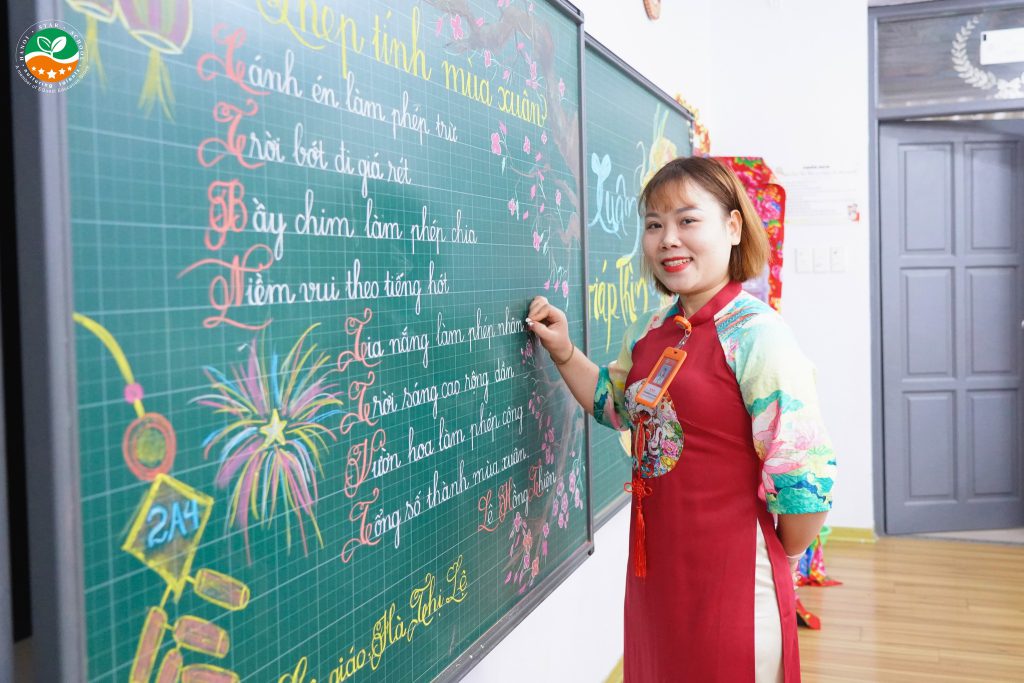 HANOI STAR SCHOOL
nurturing talents
A member of EQuest Education Group
Phép tính mùa xuân
Cánh én làm phép trừ
Trời bớt đi giá rét
Bầy chim làm phép chia
Niềm vui theo tiếng hót
Tia nắng làm phép nhân
Trời sáng cao rộng dần
Vườn hoa làm phép cộng
Tổng số thành mùa xuân.
Lê Hồng Thiện
2A4
giáo: Hà Thị Lê
Xuân
Giáp Thìn